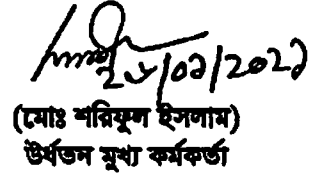 ২৮/০৯/২০২১
(মোঃ শরিফুল ইসলাম)
উর্ধতন মুখ্য কর্মকর্তা